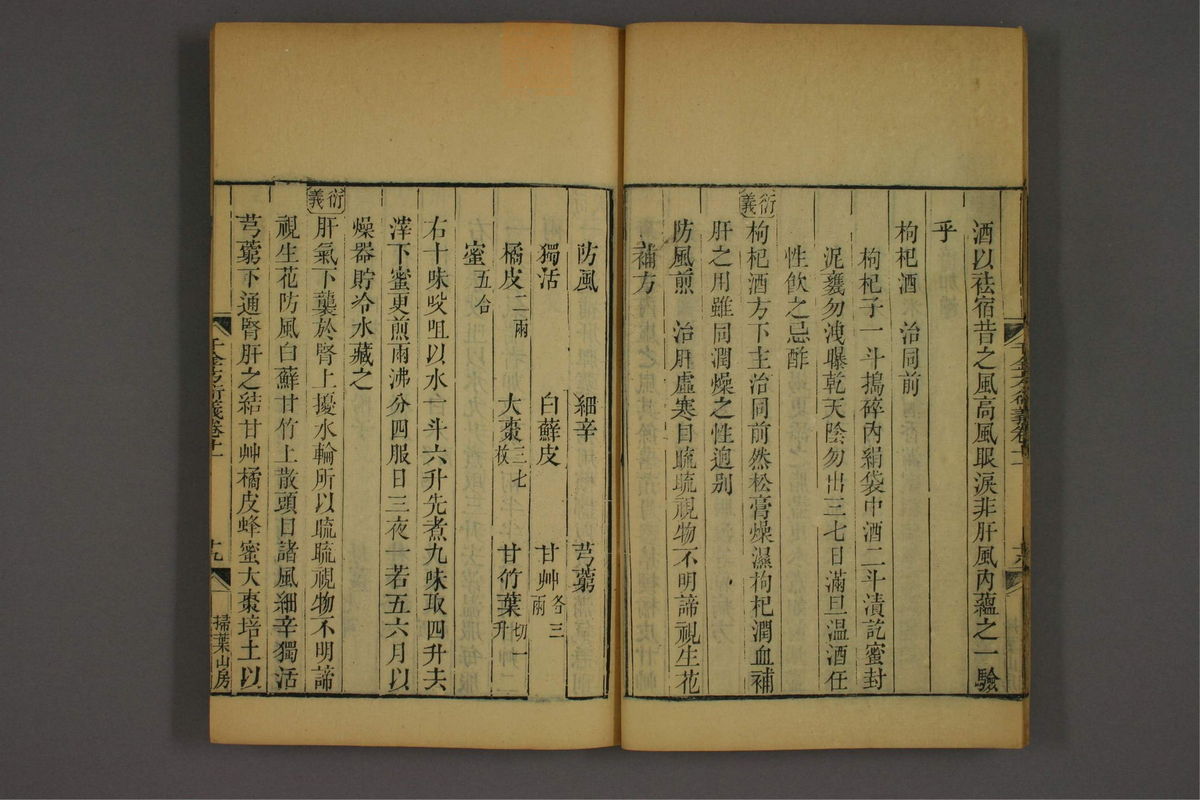 酒以祛宿昔之風高風眼淚非肝風內蘊之一驗
乎
枸杞酒 治同前
枸杞子一斗搗碎內絹袋中酒二斗漬訖蜜封
泥甕勿洩曝乾天陰勿出三七日滿旦温酒任
性飲之忌酢
衍義
枸杞酒方下主治同前然松膏燥濕枸杞潤血補
肝之用雖同潤燥之性逈别
防風煎 治肝虛寒目䀮䀮視物不明諦視生花
補方
防風 細辛 芎藭
獨活 白蘚皮 甘艸各三兩
橘皮二兩 大棗三七枚 甘竹葉切一升
蜜五合
右十味㕮咀以水一斗六升先煮九味取四升去
滓下蜜更煎兩沸分四服日三夜一若五六月以
燥器貯冷水藏之
衍義
肝氣下襲於腎上擾水輪所以䀮䀮視物不明諦
視生花防風白蘚甘竹上散頭目諸風細辛獨活
芎藭下通腎肝之結甘艸橘皮蜂蜜大棗培土以
千金方衍義卷十一
十九
掃葉山房